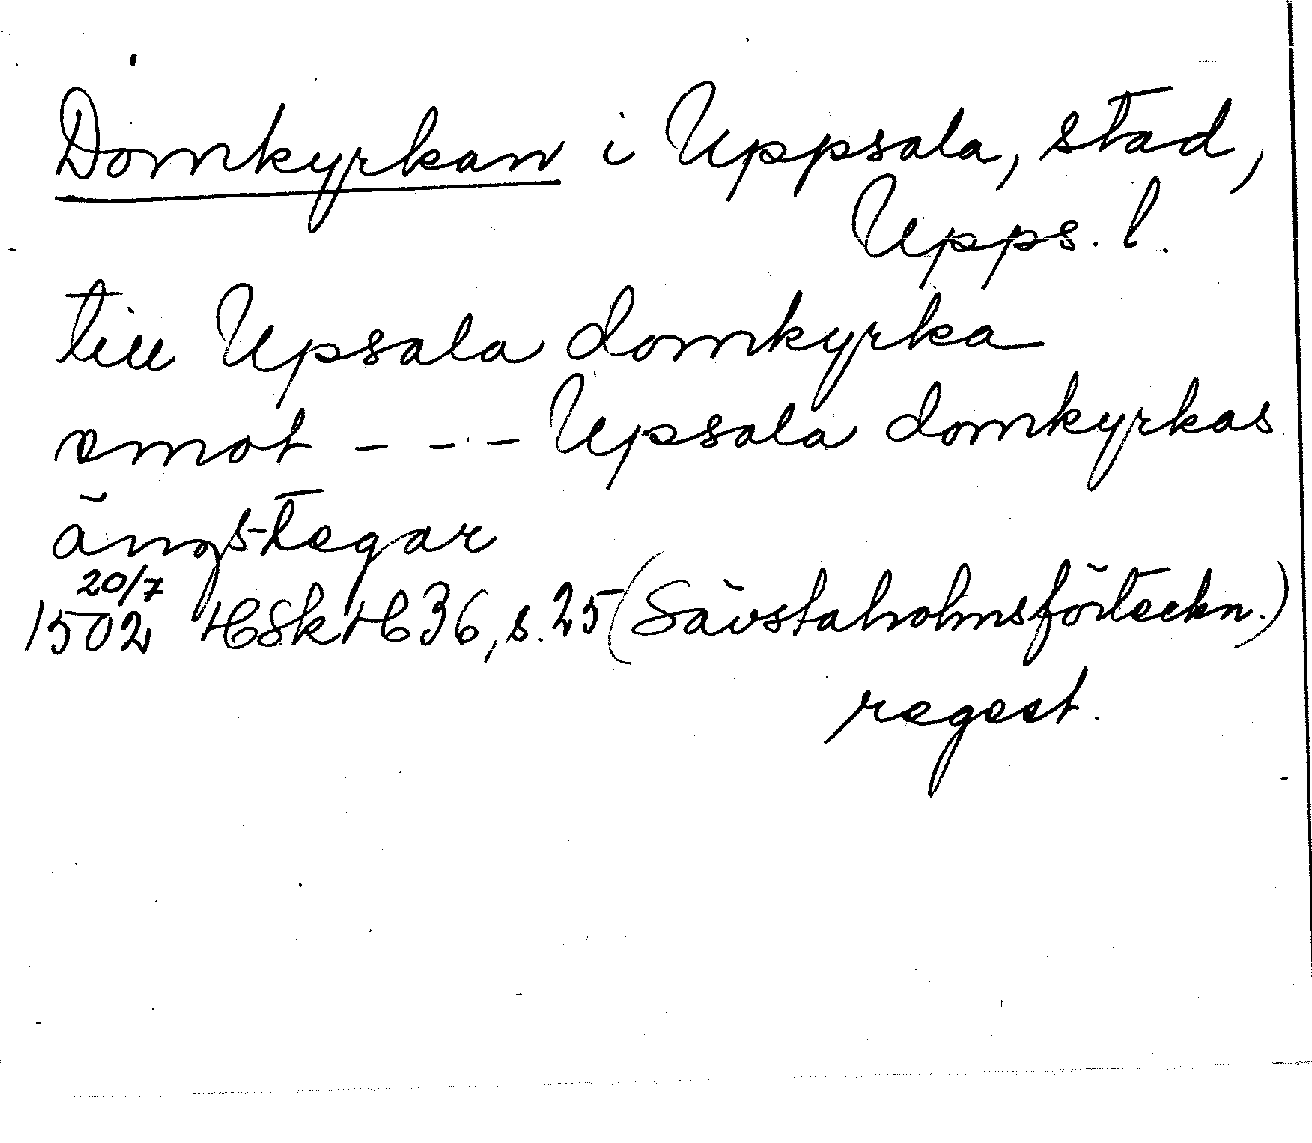 Domkyrkan i Uppsala, stad,
Upps. l.
till Upsala domkyrka
emot - - - Upsala domkyrkas
ängstegar
20/7
1502 HSkH 36, s. 25 (Sävstaholmsförteckn.)
regest.